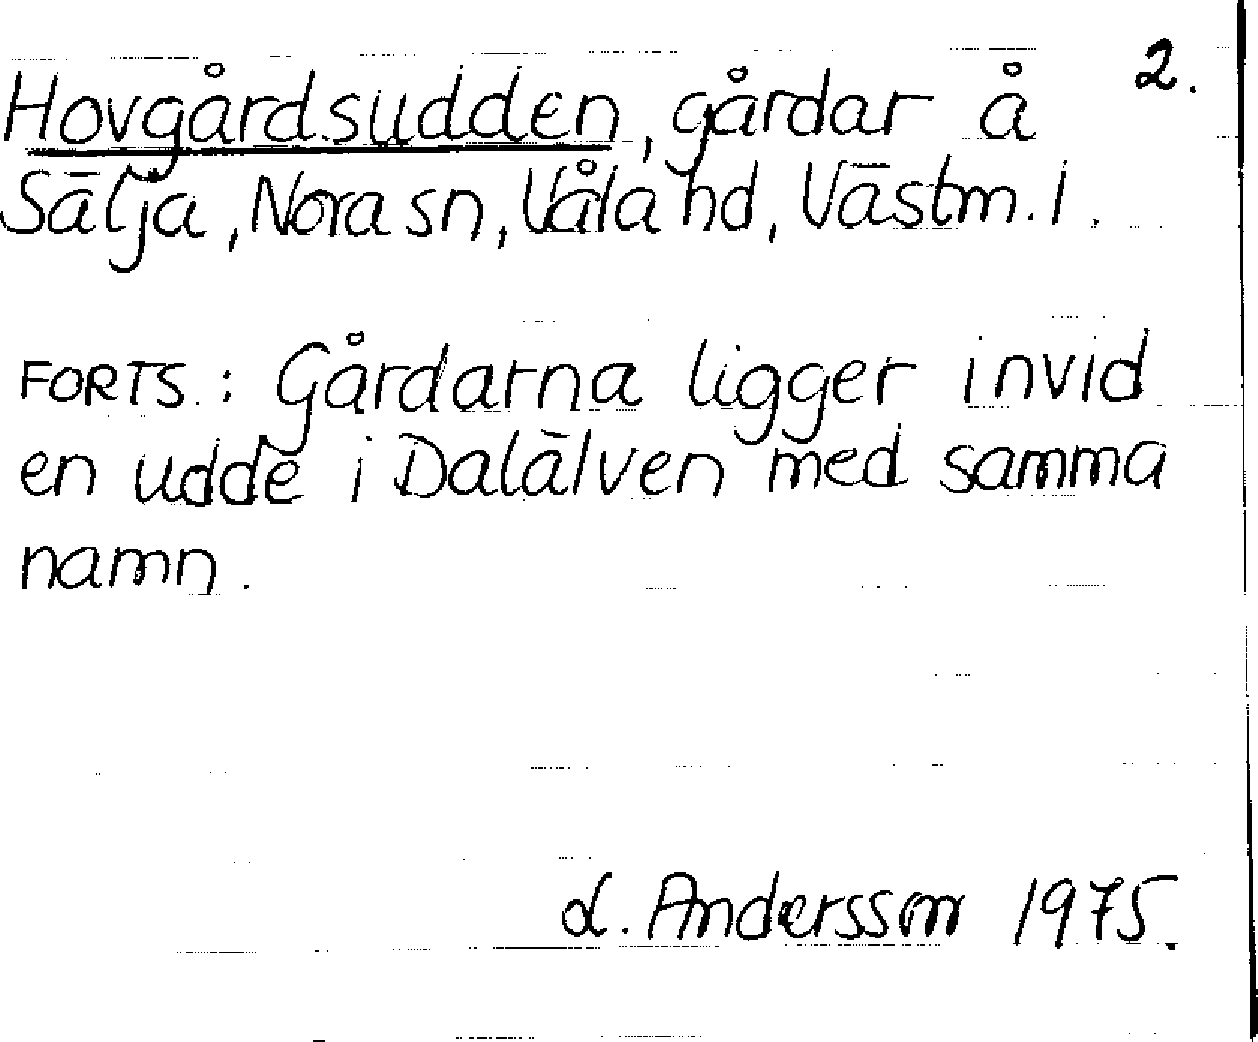 2.
Hovgårdsudden, gårdar å
Sälja, Nora sn, Våla hd, Västm. l.
FORTS.: Gårdarna ligger invid
en udde i Dalälven med samma
namn.
L. Andersson 1975.